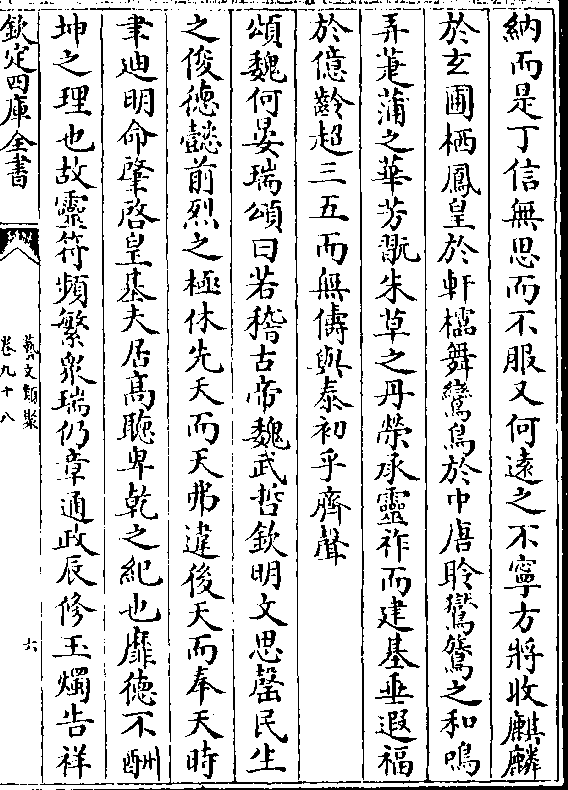 納而是丁信無思而不服又何遠之不寧方將收麒麟
於玄圃栖鳳皇於軒檽舞鸞鳥於中唐聆鸑鷟之和鳴
弄萐蒲之華芳翫朱草之丹榮承靈祚而建基垂遐福
於億齡超三五而無儔與泰初乎齊聲
頌魏何晏瑞頌曰若稽古帝魏武哲欽明文思罄民生
之俊德懿前烈之極休先天而天弗違後天而奉天時
聿廸明命肇啓皇基夫居高聽卑乾之紀也靡德不酬
坤之理也故靈符頻繁衆瑞仍章通政辰修玉燭告祥
欽定四庫全書
藝文類聚
卷九十八
六